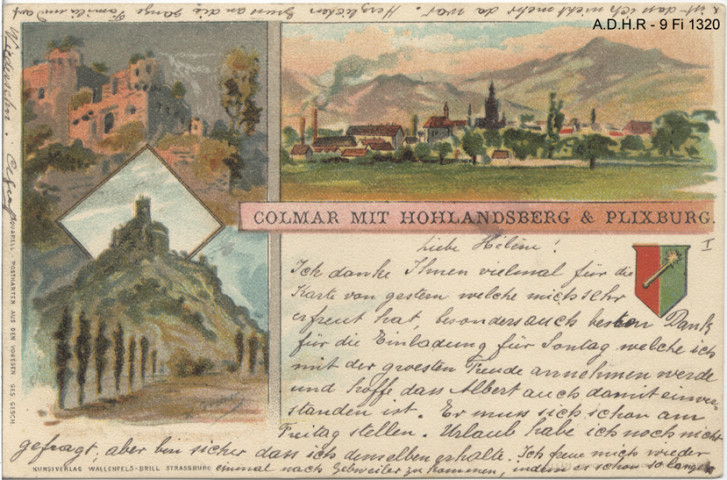 A.D.H.R - 9 Fi 1320
COLMAR MIT HOHLANDSBERG & PLIXBURG.
I
Liebe Hélène!
Ich danke Ihnen vielmal für die
Karte von gestern welche mich sehr
erfreut hat, besonders auch besten Dank
für die Einladung für Sontag welche ich
mit der groesten Freude annehmen werde
und hoffe dass Albert auch damit einver
standen ist. Er muss sich schon am
Freitag stellen. Urlaub habe ich noch nicht
gefragt, aber bin sicher dass ich denselben erhalte. Ich freue mich wieder
einmal nach Gebweiler zu kommen, indem er schon so lange
ist dass ich nicht mehr da war. Herzlichen Gruss an die ganze Familie und auf
Wiedersehn.
KUNSTVERLAG WALLENFELS-BRILL STRASSBURG
AQUARELL-POSTKARTEN AUS DEN VOGESEN GES. GESCH